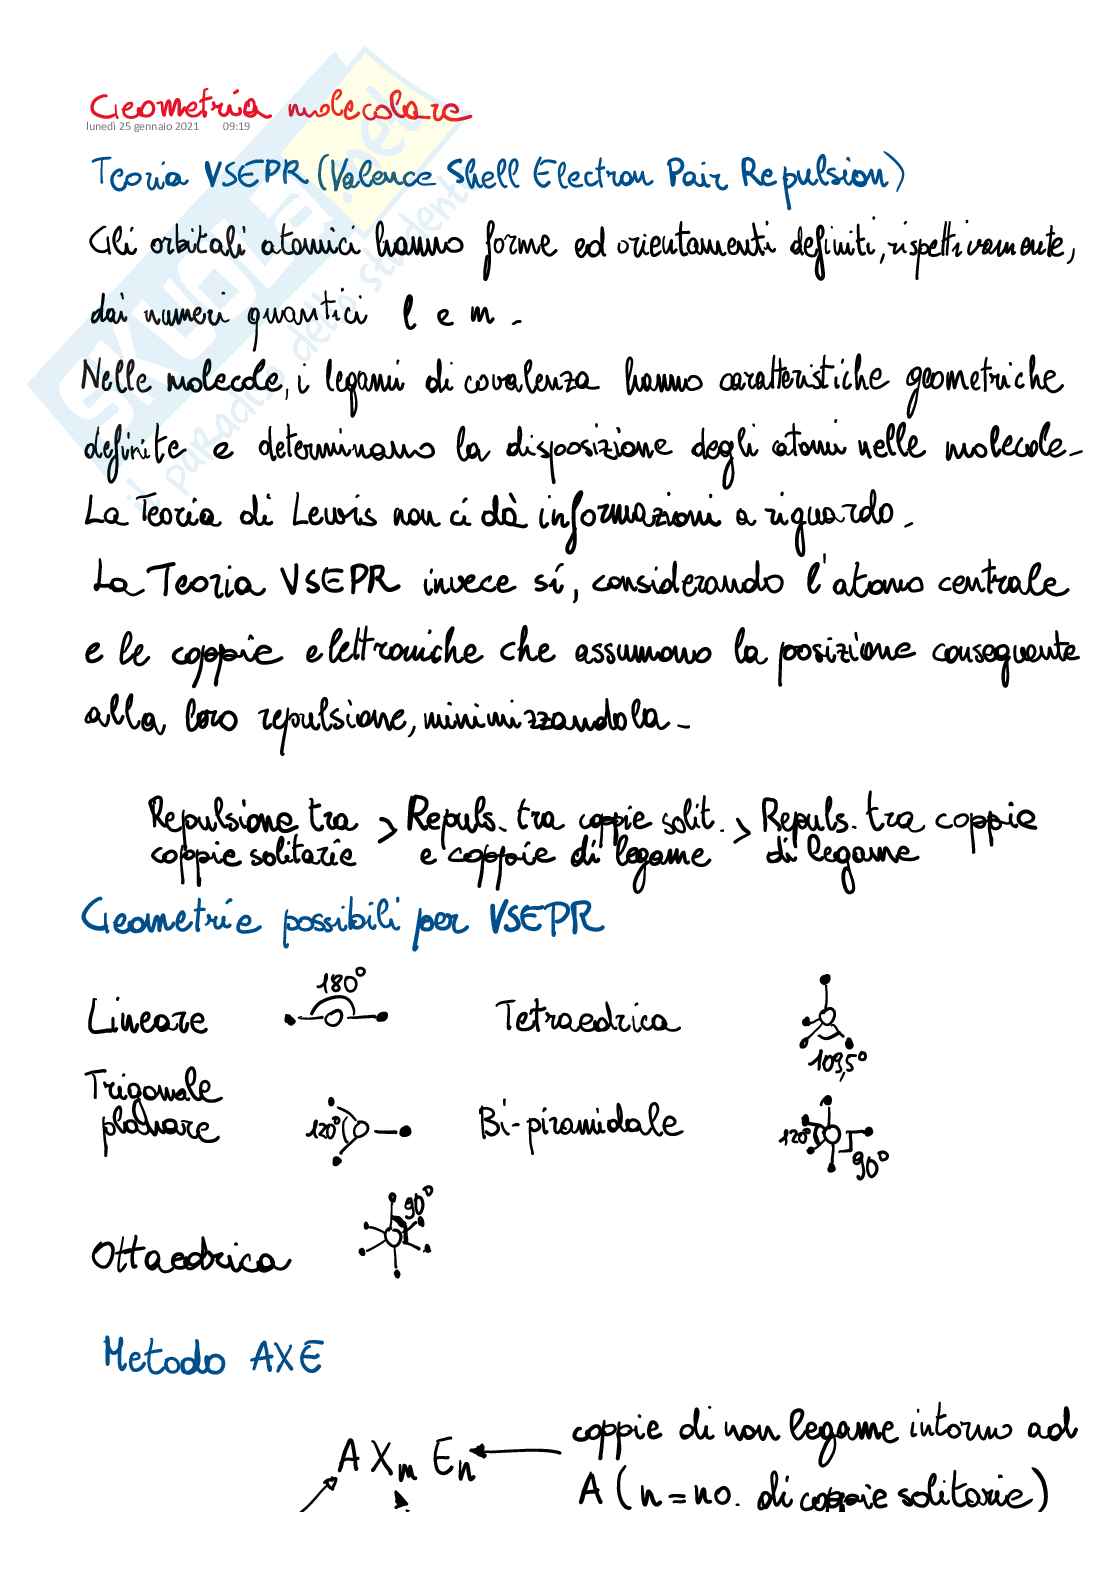 Geometria molecolare
lunedì 25 gennaio 2021 09:19
Teoria VSEPR (Valence Shell Electron Pair Repulsion)
Gli orbitali atomici hanno forme ed orientamenti definiti, rispettivamente,
dai numeri quantici l e m.
Nelle molecole, i legami di covalenza hanno caratteristiche geometriche
definite e determinano la disposizione degli atomi nelle molecole.
La Teoria di Lewis non ci dà informazioni a riguardo.
La Teoria VSEPR invece sí, considerando l'atomo centrale
e le coppie elettroniche che assumono la posizione conseguente
alla loro repulsione, minimizzandola.
Repulsione tra > Repuls. tra coppie solit. > Repuls. tra coppie
coppie solitarie e coppie di legame di legame
Geometrie possibili per VSEPR
180°
Lineare Tetraedrica
109,5°
Trigonale
planare 120° Bi-piramidale 120° 90°
90°
Ottaedrica
Metodo AXE
coppie di non legame intorno ad
A Xm En
A (n = no. di coppie solitarie)
SKUOLA.net
il paradiso dello studente